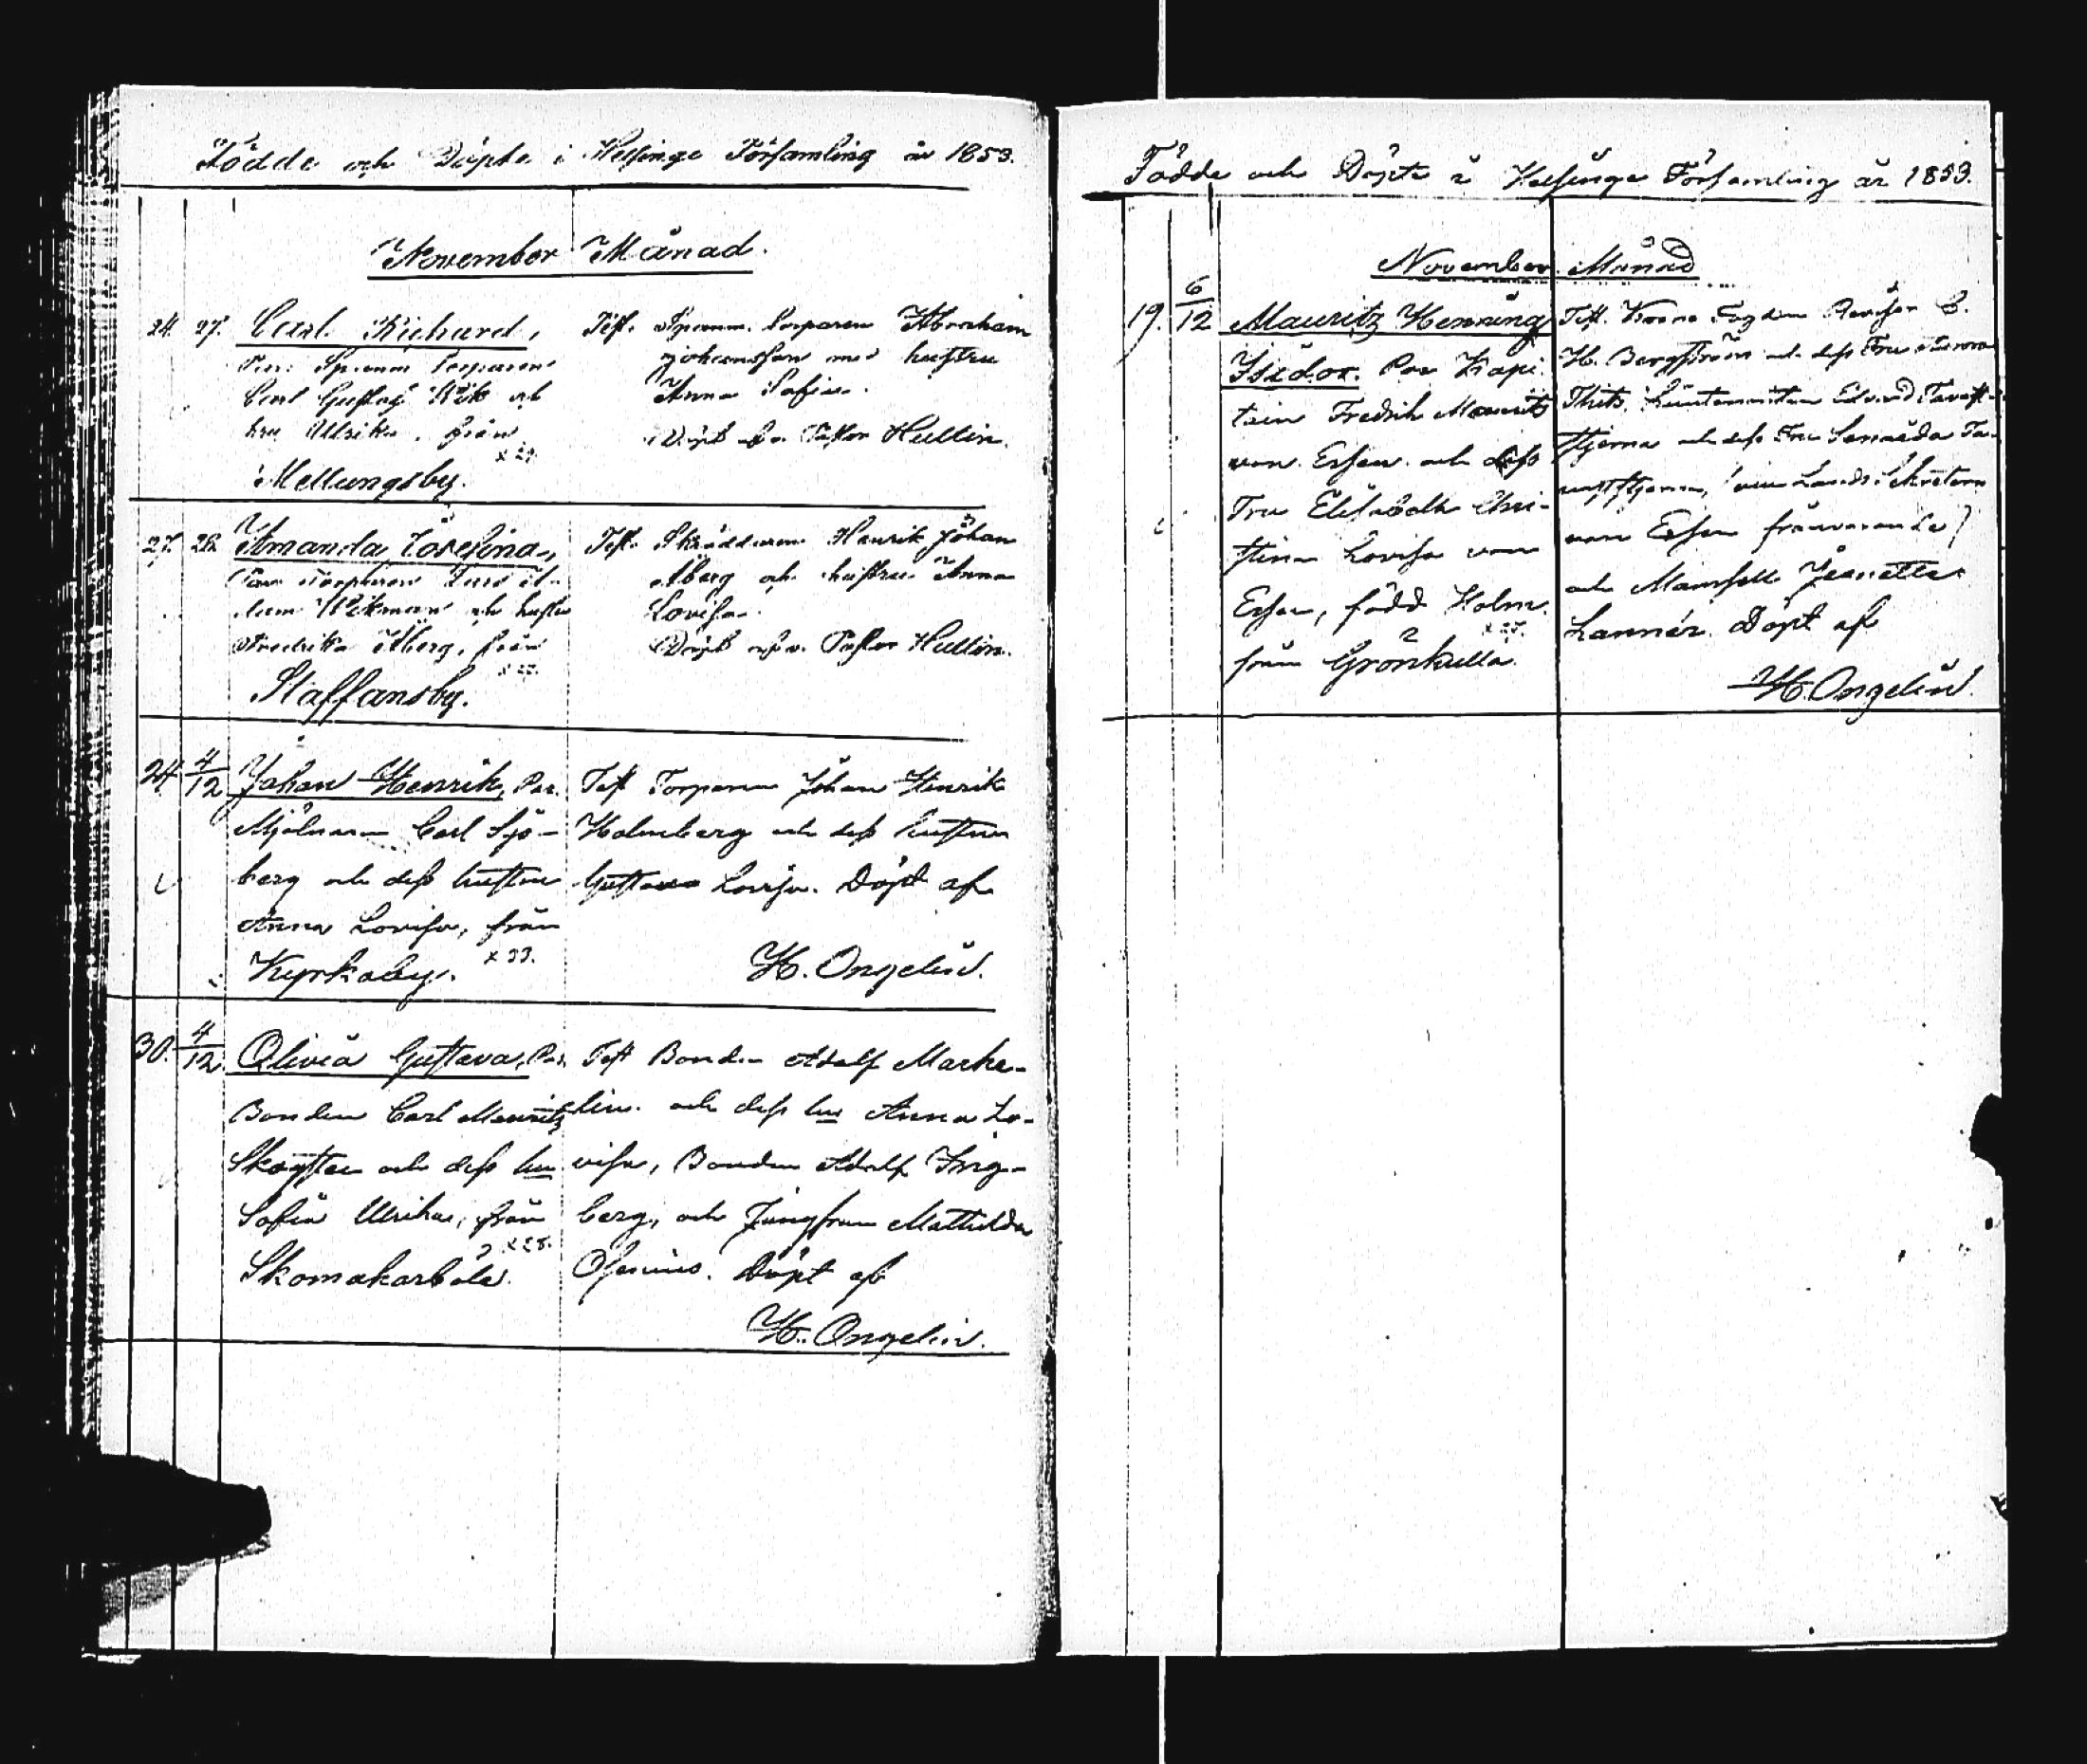 Födde och Döpte i Helsinge Församling år 1853.
November Månad.
24. 27. Carl Richard,
Carl Gustaf Wik och
hru Ulrika, från
x 29.
Mellungsby.
Test. Torparen Abraham
Johansson med hustru
Anna Sofia.
Döpt af v. Pastor Hullin.
27. 28. Amanda Josefina,
Wikman och hustru
Fredrika Åberg, från
Staffansby.
Test. Skräddaren Henrik Johan
Åberg och hustru Anna
Lovisa.
Döpt af v. Pastor Hullin.
24 4/12 Johan Henrik, Par.
Mjölnaren Carl Sjö-
berg och dess hustru
Anna Lovisa, från
x 33.
Kyrkoby.
Test Torparen Johan Henrik
Holmberg och dess hustru
Gustava Lovisa. Döpt af
H. Ongelin.
30. 4/12 Olivia Gustava, Par.
Bonden Carl Mauritz
och dess hu
Sofia Ulrika, från
x 28.
Skomakarböle.
Test Bonden Adolf Marke-
lin och dess hu Anna Lo-
visa, Bonden Adolf Ing-
berg, och Jungfrun Mathilda
Döpt af
H. Ongelin.
Födde och Döpte i Helsinge Församling år 1853.
November Månad
19. 6/12 Mauritz Henning
Isidor. Par Kapi-
tain Fredrik Maurits
von Essen och dess
Fru Elisabeth Chri-
stina Lovisa von
Essen, född Holm.
från Grönkulla.
Test. Krono Fogden C.
H. Bergström och dess Fru
Lieutenanten Edvard Tavast-
stjerna och dess Fru Ta-
vaststjerna,
von Essen frånvarande)
och Mamsell Jeanette
Lannér. Döpt af
H. Ongelin.